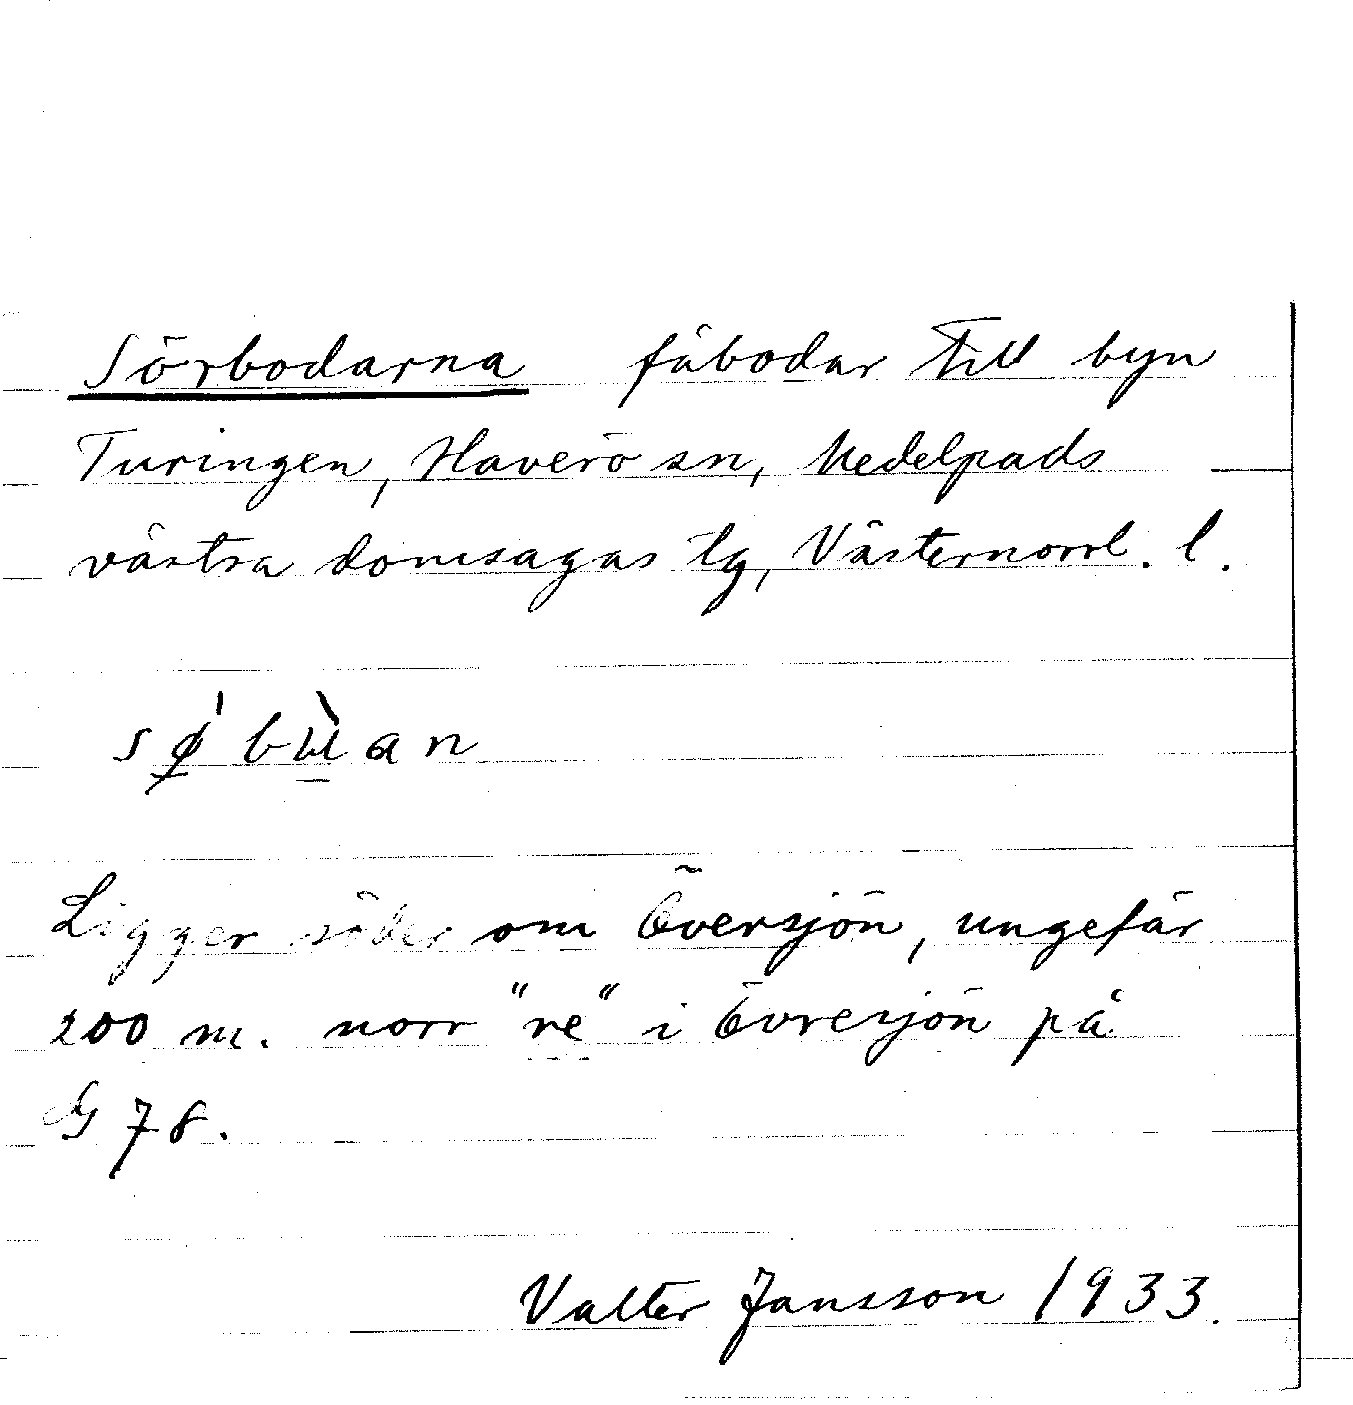 Sörbodarna fäbodar till byn
Turingen, Haverö sn, Medelpads
västra domsagas tg, Västernorrl. l.
sǿ̲bù̲an
Ligger söder om Översjön, ungefär
200 m. norr "re" i Övresjön på
G 78.
Valter Jansson 1933.